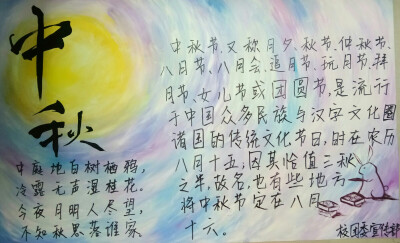 中秋
中秋节、又称月夕、秋节、仲秋节、
八月节、八月会、追月节、玩月节、拜
月节、女儿节或团圆节,是流行
于中国众多民族与汉字文化圈
诸国的传统文化节日,时在农历
八月十五,因其恰值三秋
之半,故名,也有些地方
将中秋节定在八月
十六。
中庭地白树栖鸦,
冷露无声湿桂花。
今夜月明人尽望,
不知秋思落谁家
校团委宣传部